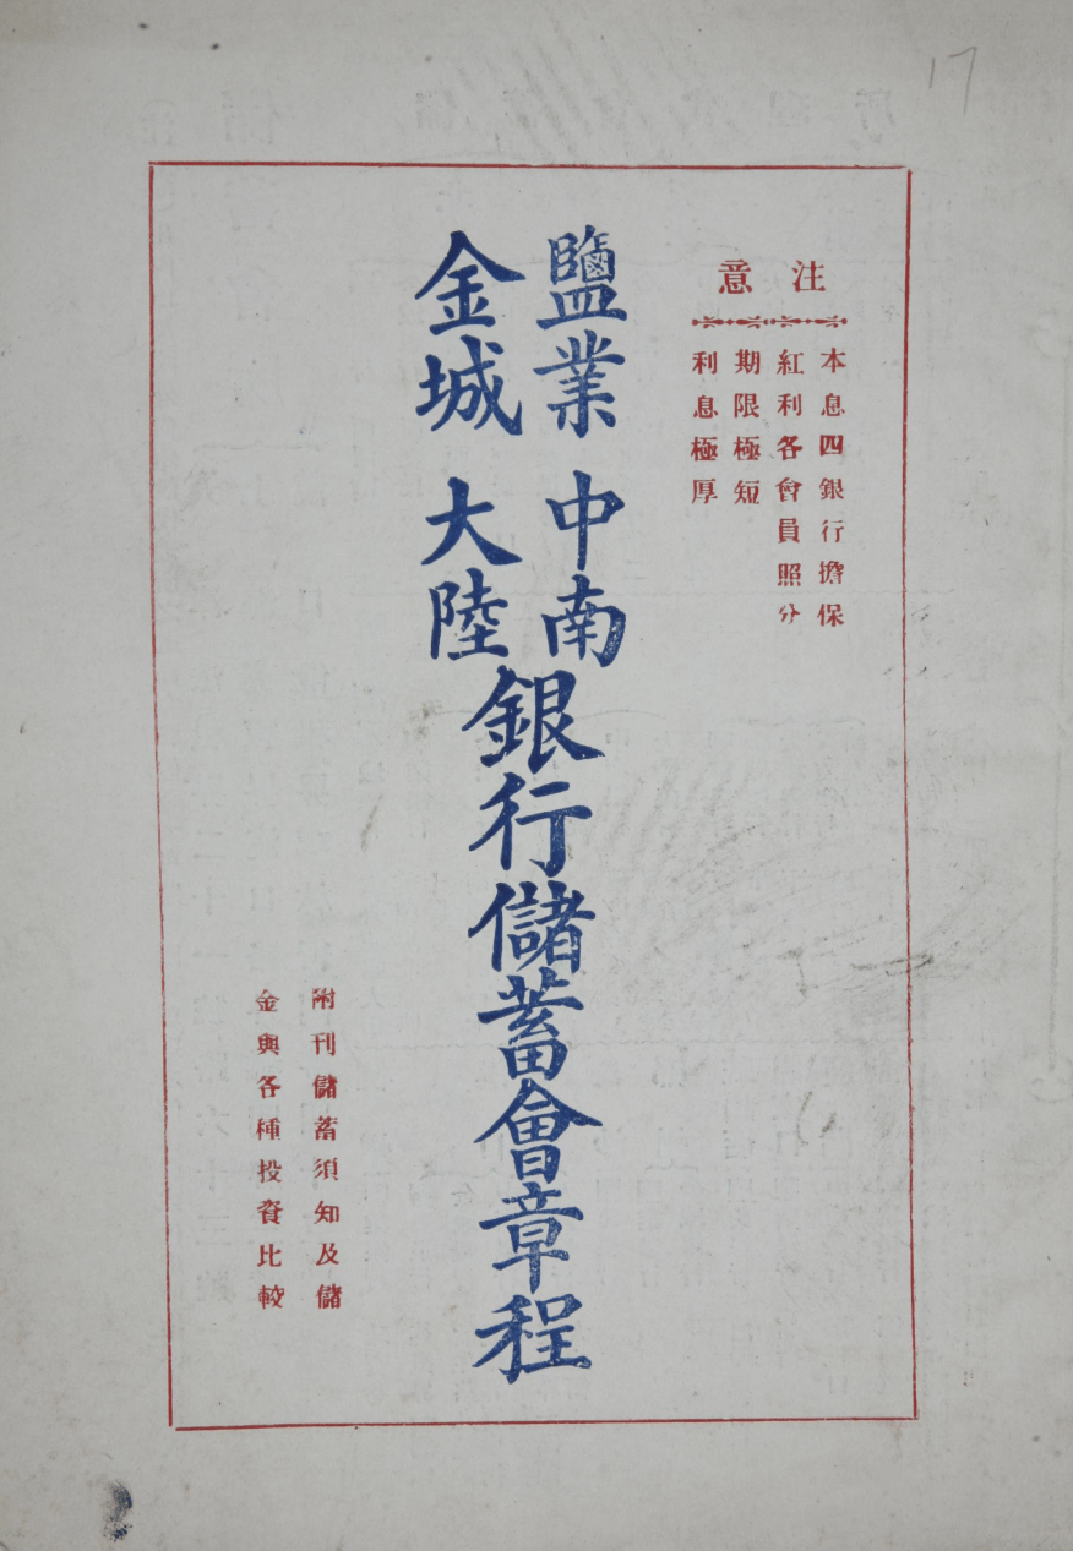 17
注意
本息四銀行擔保
紅利各會員照分
期限極短
利息極厚
鹽業 中南
金城 大陸
銀行儲蓄會章程
附刊儲蓄須知及儲
金與各種投資比較